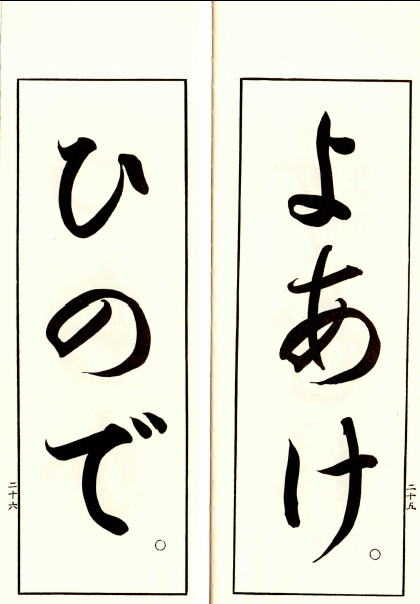 よあけ
二十五
ひので
二十六